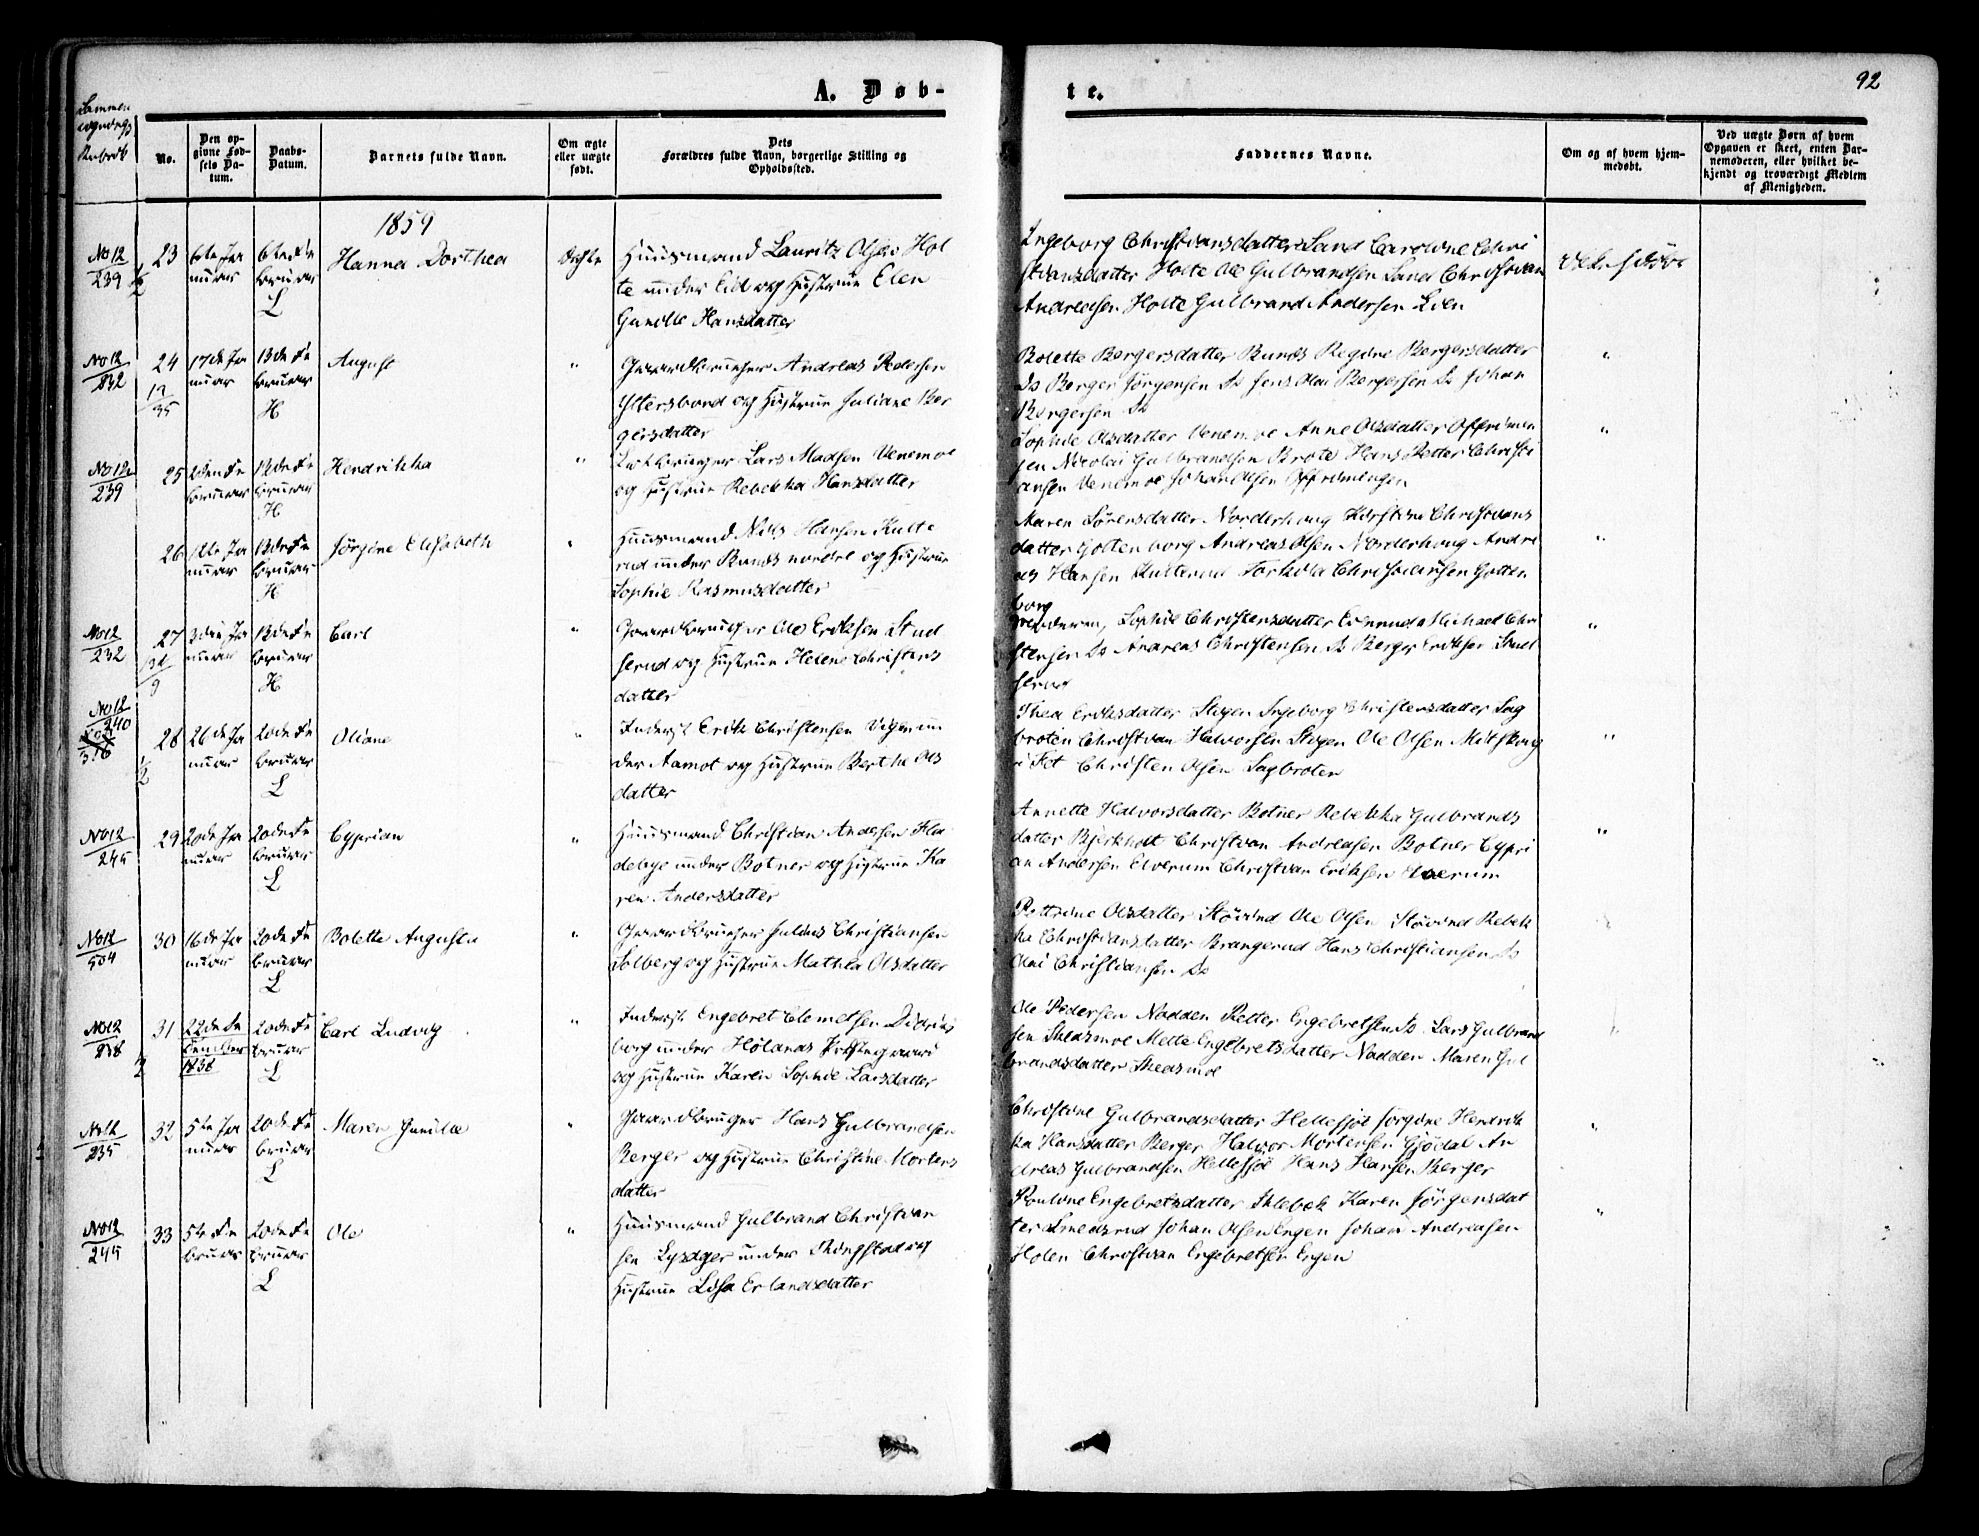 A. Døb-
te.
92
Sammen
Rubrik
No.
Den op-
givne Fød-
sels Da-
tum.
Daabs-
Datum.
Barnets fulde Navn.
Om ægte
eller uægte
født.
Dets
Forældres fulde Navn, borgerlige Stilling og
Opholdssted.
Faddernes Navne.
Om og af hvem hjem-
medøbt.
Ved uægte Børn af hvem
Opgaven er skeet, enten Bar-
nemoderen, eller hvilket be-
kjendt og troværdigt Medlem
af Menigheden.
1859
No 12
239
23
6te Ja
nuar
6te Fe
bruar
L
Hanna Dorthea
Ægte
Huusmand Lauritz Olsen Hol
te under Eid og Hustrue Elen
Gunille Hansdatter
Ingeborg Christiansdatter Sand Caroline Chri
stiansdatter Holte Ole Gulbrandsen Sand Christian
Andreasen Holte Gulbrand Andersen Lien
No 12
232
24
12
35
17de Ja
nuar
13de Fe
bruar
H
August
"
Gaardbruger Andreas Pedersen
Yttersbord og Hustrue Juliane Ber
gersdatter
Bolette Bergersdatter Bunes Regine Bergersdatter
Do Berger Jørgensen Do Jens Olai Bergersen Do Johan
Bergersen Do
"
No 12
239
25
2den Fe
bruar
13de Fe
bruar
H
Hendrikka
"
Lars Madsen Venemoe
og Hustrue Rebekka Hansdatter
Sophie Olsdatter Venemoe Anne Olsdatter Offerdinin
gen Nicolai Gulbrandsen Brote Hans Petter Christi
ansen Venemoe Johan Olsen
"
26
12te Ja
nuar
13de Fe
bruar
H
Jørgine Elisabeth
"
Huusmand Nils Hansen Kulte
rud under Bunes nordre og Hustrue
Sophie Rasmusdatter
Maren Sørensdatter Norderhaug Kirstine Christians
datter Gottenborg Andreas Olsen Norderhaug Andre
as Hansen Kulterud Torkild Christiansen Gotten
borg
"
No 12
232
27
9
3die Ja
nuar
13de Fe
bruar
H
Carl
"
Gaardbruger Ole Eriksen Stud
serud og Hustrue Helene Christens
datter
Moderen, Sophie Christensdatter Evenrud Michael Chri
stensen Do Andreas Christensen Do Berger Eriksen Stud
serud
"
No 12
240
28
1/2
26de Ja
nuar
20de Fe
bruar
L
Oliane
"
Inderst Erik Christensen Vigen un
der Aamot og Hustrue Berthe Ols
datter
Thea Eriksdatter Stigen Ingeborg Christensdatter Sag
broten Christian Halvorsen Stigen Ole Olsen Milskoug
i Fet Christen Olsen Sagbroten
"
No 12
245
29
20de Ja
nuar
20de Fe
bruar
L
Cyprian
"
Huusmand Christian Andersen Fla
debye under Botner og Hustrue Ka
ren Andersdatter
Annette Halvorsdatter Botner Rebekka Gulbrands
datter Bjerkholt Christian Andreasen Botner Cypri
an Andersen Elverum Christian Eriksen Elverum
"
No 12
504
30
16de Ja
nuar
20de Fe
bruar
L
Bolette Augusta
"
Gaardbruger Julius Christiansen
Solberg og Hustrue Mathea Olsdatter
Pettrine Olsdatter Støvind Ole Olsen Støvind Rebek
ka Christiansdatter Brangerud Hans Christiansen Do
Olai Christiansen Do
"
No 12
238
31
22de De
cember
1858
20de Fe
bruar
L
Carl Ludvig
"
Inderst Engebret Clemetsen Didriks
borg under Hølands Prestegaard
og Hustrue Karen Sophie Larsdatter
Ole Pedersen Nadden Petter Engebretsen Do Lars Gulbrand
sen Skedsmoe Mette Engebretsdatter Nadden Maren Gul
brandsdatter Skedsmoe
"
No 12
235
32
5te Ja
nuar
20de Fe
bruar
L
Maren Gunille
"
Gaardbruger Hans Gulbrandsen
Berger og Hustrue Christine Mortens
datter
Christine Gulbrandsdatter Hellesjøe Jørgine Hendrik
ka Hansdatter Berger Halvor Mortensen Gjødal An
dreas Gulbrandsen Hellesjøe Hans Hansen Berger
"
No 12
245
33
5te Fe
bruar
20de Fe
bruar
L
Ole
"
Huusmand Gulbrand Christian
sen Lysager under Ringstad og
Hustrue Lisa Erlandsdatter
Pouline Engebretsdatter Karen Jørgensdat
ter Smedsrud Johan Olsen Engen Johan Andreasen
Holen Christian Engebretsen Engen
"